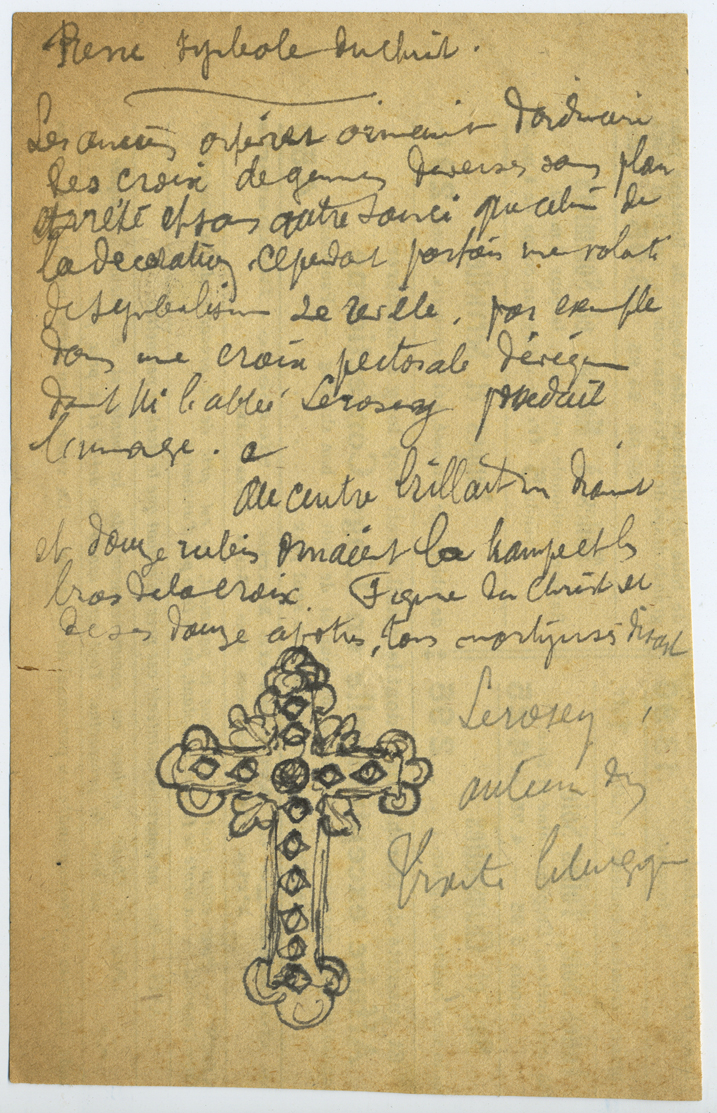 Pierre symbole du Christ.
Les anciens orfèvres ornaient d'ordinaire
les croix de gemmes diverses sans plan
arrêté et sans autre souci que celui de
la décoration, cependant parfois une volonté
de symbolisme se révèle, par exemple
dans une croix pectorale d'évêque
dont M. l'abbé Lerosey produit
l'image.
Au centre brillait un diamant
et douze rubis ornaient la hampe et les
bras de la croix Figure du Christ et
de ses douze apôtres, tous martyrisés disait
Lerosey,
auteur du
Traité liturgique